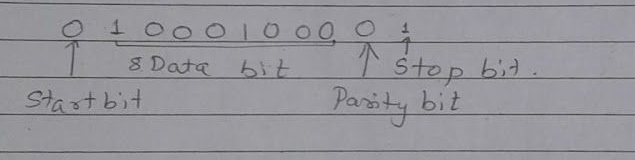 0 1 0 0 0 1 0 0 0 0 1
8 Data bit Stop bit.
Start bit Parity bit